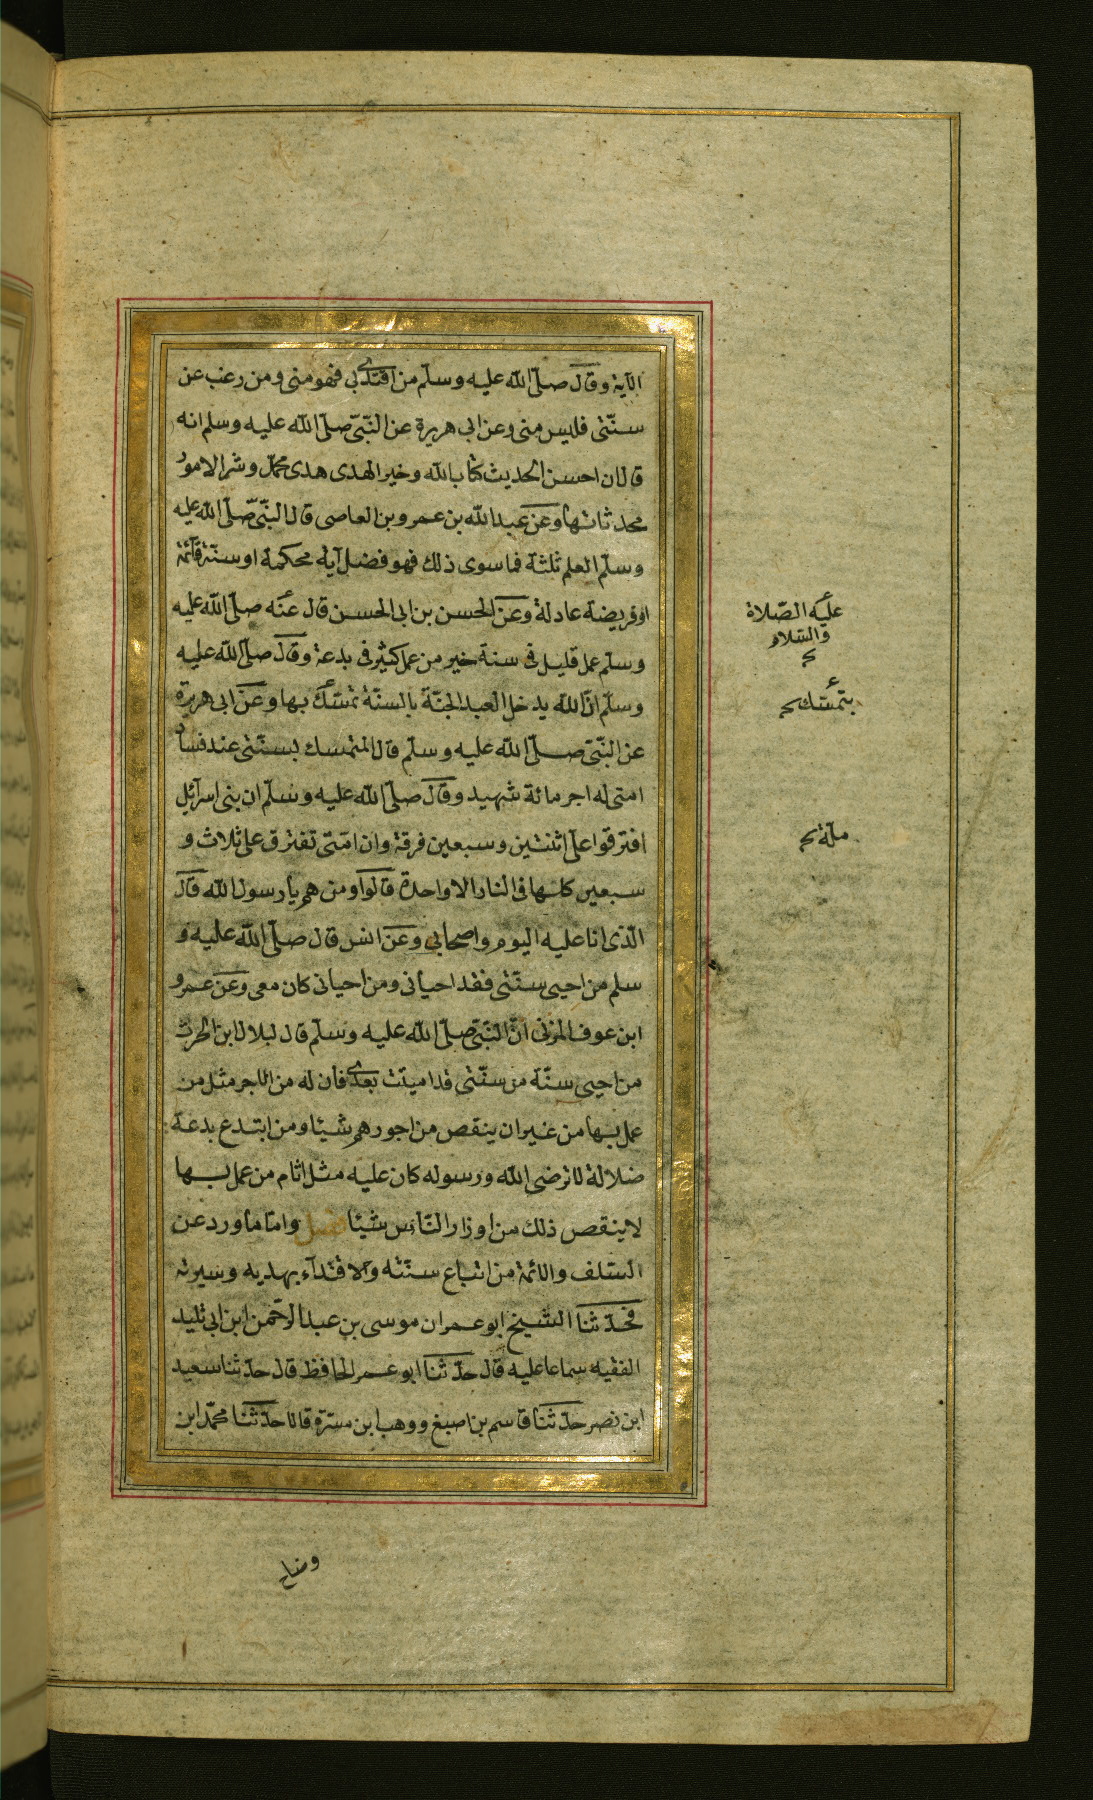 الآية وقال صلّى الله عليه وسلّم من اقتدى بي فهو منى ومن رغب عن
سنّتى فليس منى وعن ابى هريرة عن النّبىّ صلّى الله عليه وسلم انه
قال ان احسن الحديث كتاب الله وخير الهدى هدى محمّد وشر الامور
محدثاتها وعن عبد الله بن عمرو بن العاصى قال النّبىّ صلّى الله عليه
وسلّم العلم ثلثة فما سوى ذلك فهو فضل آية محكمة او سنّة قآئمة
او فريضة عادلة وعن الحسن بن ابى الحسن قال عنه صلّى الله عليه
وسلّم عمل قليل فى سنة خير من عمل كثير فى بدعة وقال صلّى الله عليه
وسلّم انّ الله يدخل العبد الجنّة بالسنّة تمسّك بها وعن ابى هريرة
عن النّبىّ صلّى الله عليه وسلّم قال المتمسك بسنّتى عند فساد
امتى له اجر مائة شهيد وقال صلّى الله عليه وسلّم ان بنى اسرآئيل
افترقوا على اثنتين وسبعين فرقة وان امّتى تفترق على ثلاث و
سبعين كلها فى النار الا واحدة قالوا ومن هم يا رسول الله قال
الّذى انا عليه اليوم واصحابي وعن انس قال صلّى الله عليه و
سلم من احيى سنّتى فقد احيانى ومن احيانى كان معى وعن عمرو
ابن عوف المزنى انّ النّبىّ صلّى الله عليه وسلّم قال لبلال ابن الحرث
من احيى سنّة من سنّتى قد اميتت بعدى فان له من الاجر مثل من
عمل بها من غير ان ينقص من اجورهم شيئا ومن ابتدع بدعة
ضلالة لا ترضى الله ورسوله كان عليه مثل اثام من عمل بها
لا ينقص ذلك من اوزار النّاس شيئا فصل وامّا ما ورد عن
السّلف والائمّة من اتباع سنّته والاقتدآء بهديه وسيرته
فحدّثنا الشّيخ ابو عمران موسى بن عبد الرّحمن ابن ابى تليد
الفقيه سماعا عليه قال حدّثنا ابو عمر الحافظ قال حدّثنا سعيد
ابن نصر حدّثنا قاسم بن اصبغ ووهب ابن مسرّة قالا حدّثنا محمّد ابن
عليه الصّلاة
والسّلام
بتمسّك
ملّة
وضاح